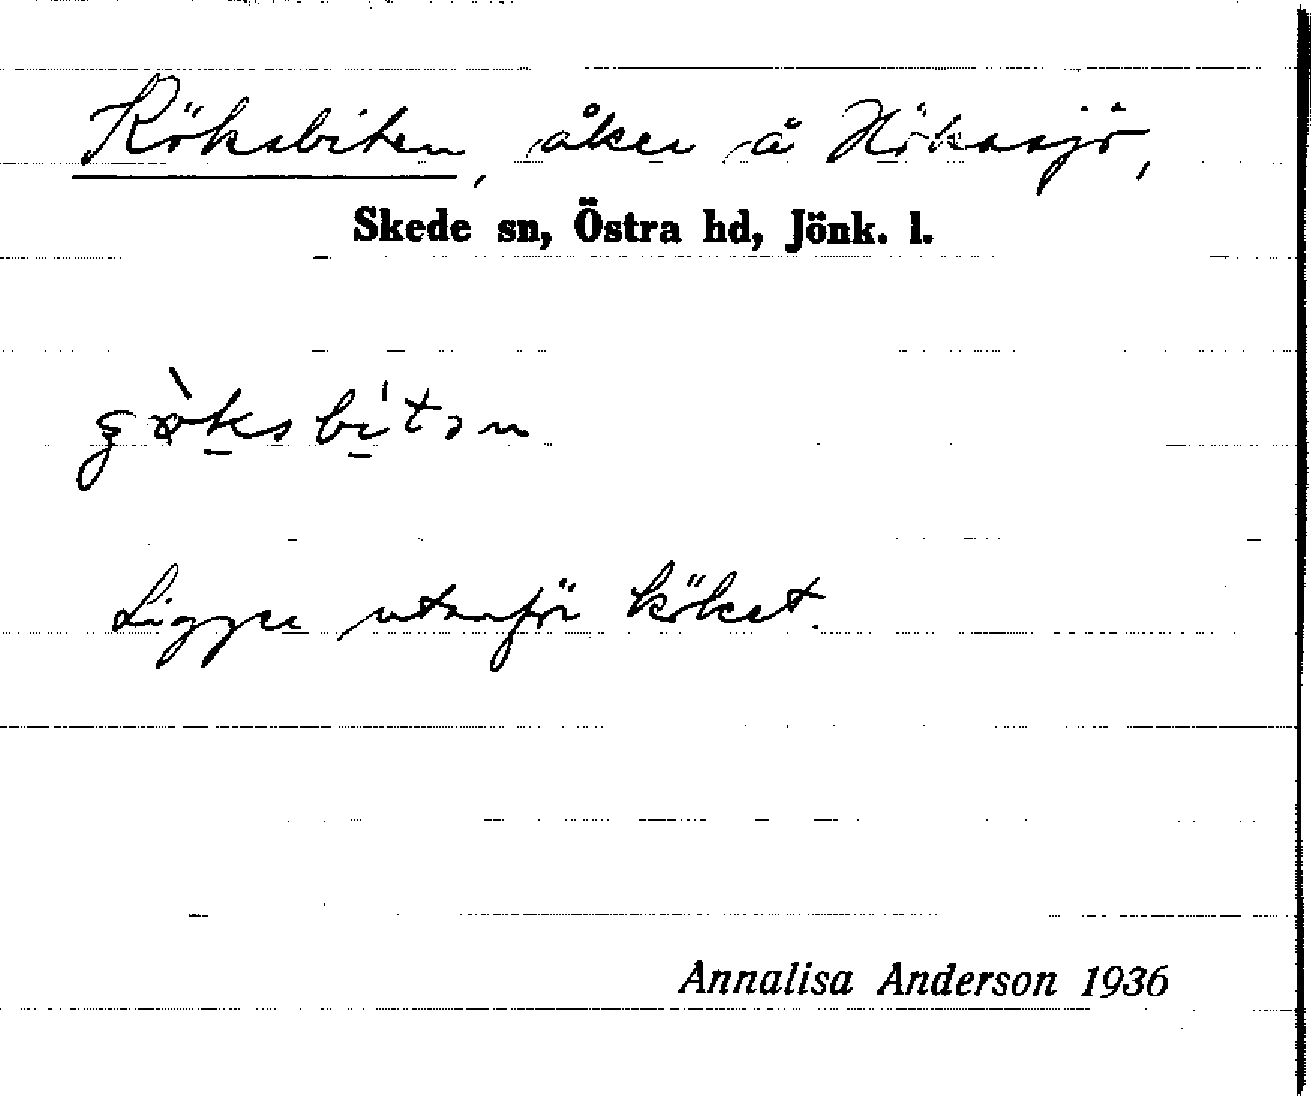 Köksbiten, åker å Hökasjö,
Skede sn, Östra hd, Jönk. l.
Ligger utanför köket.
Annalisa Anderson 1936